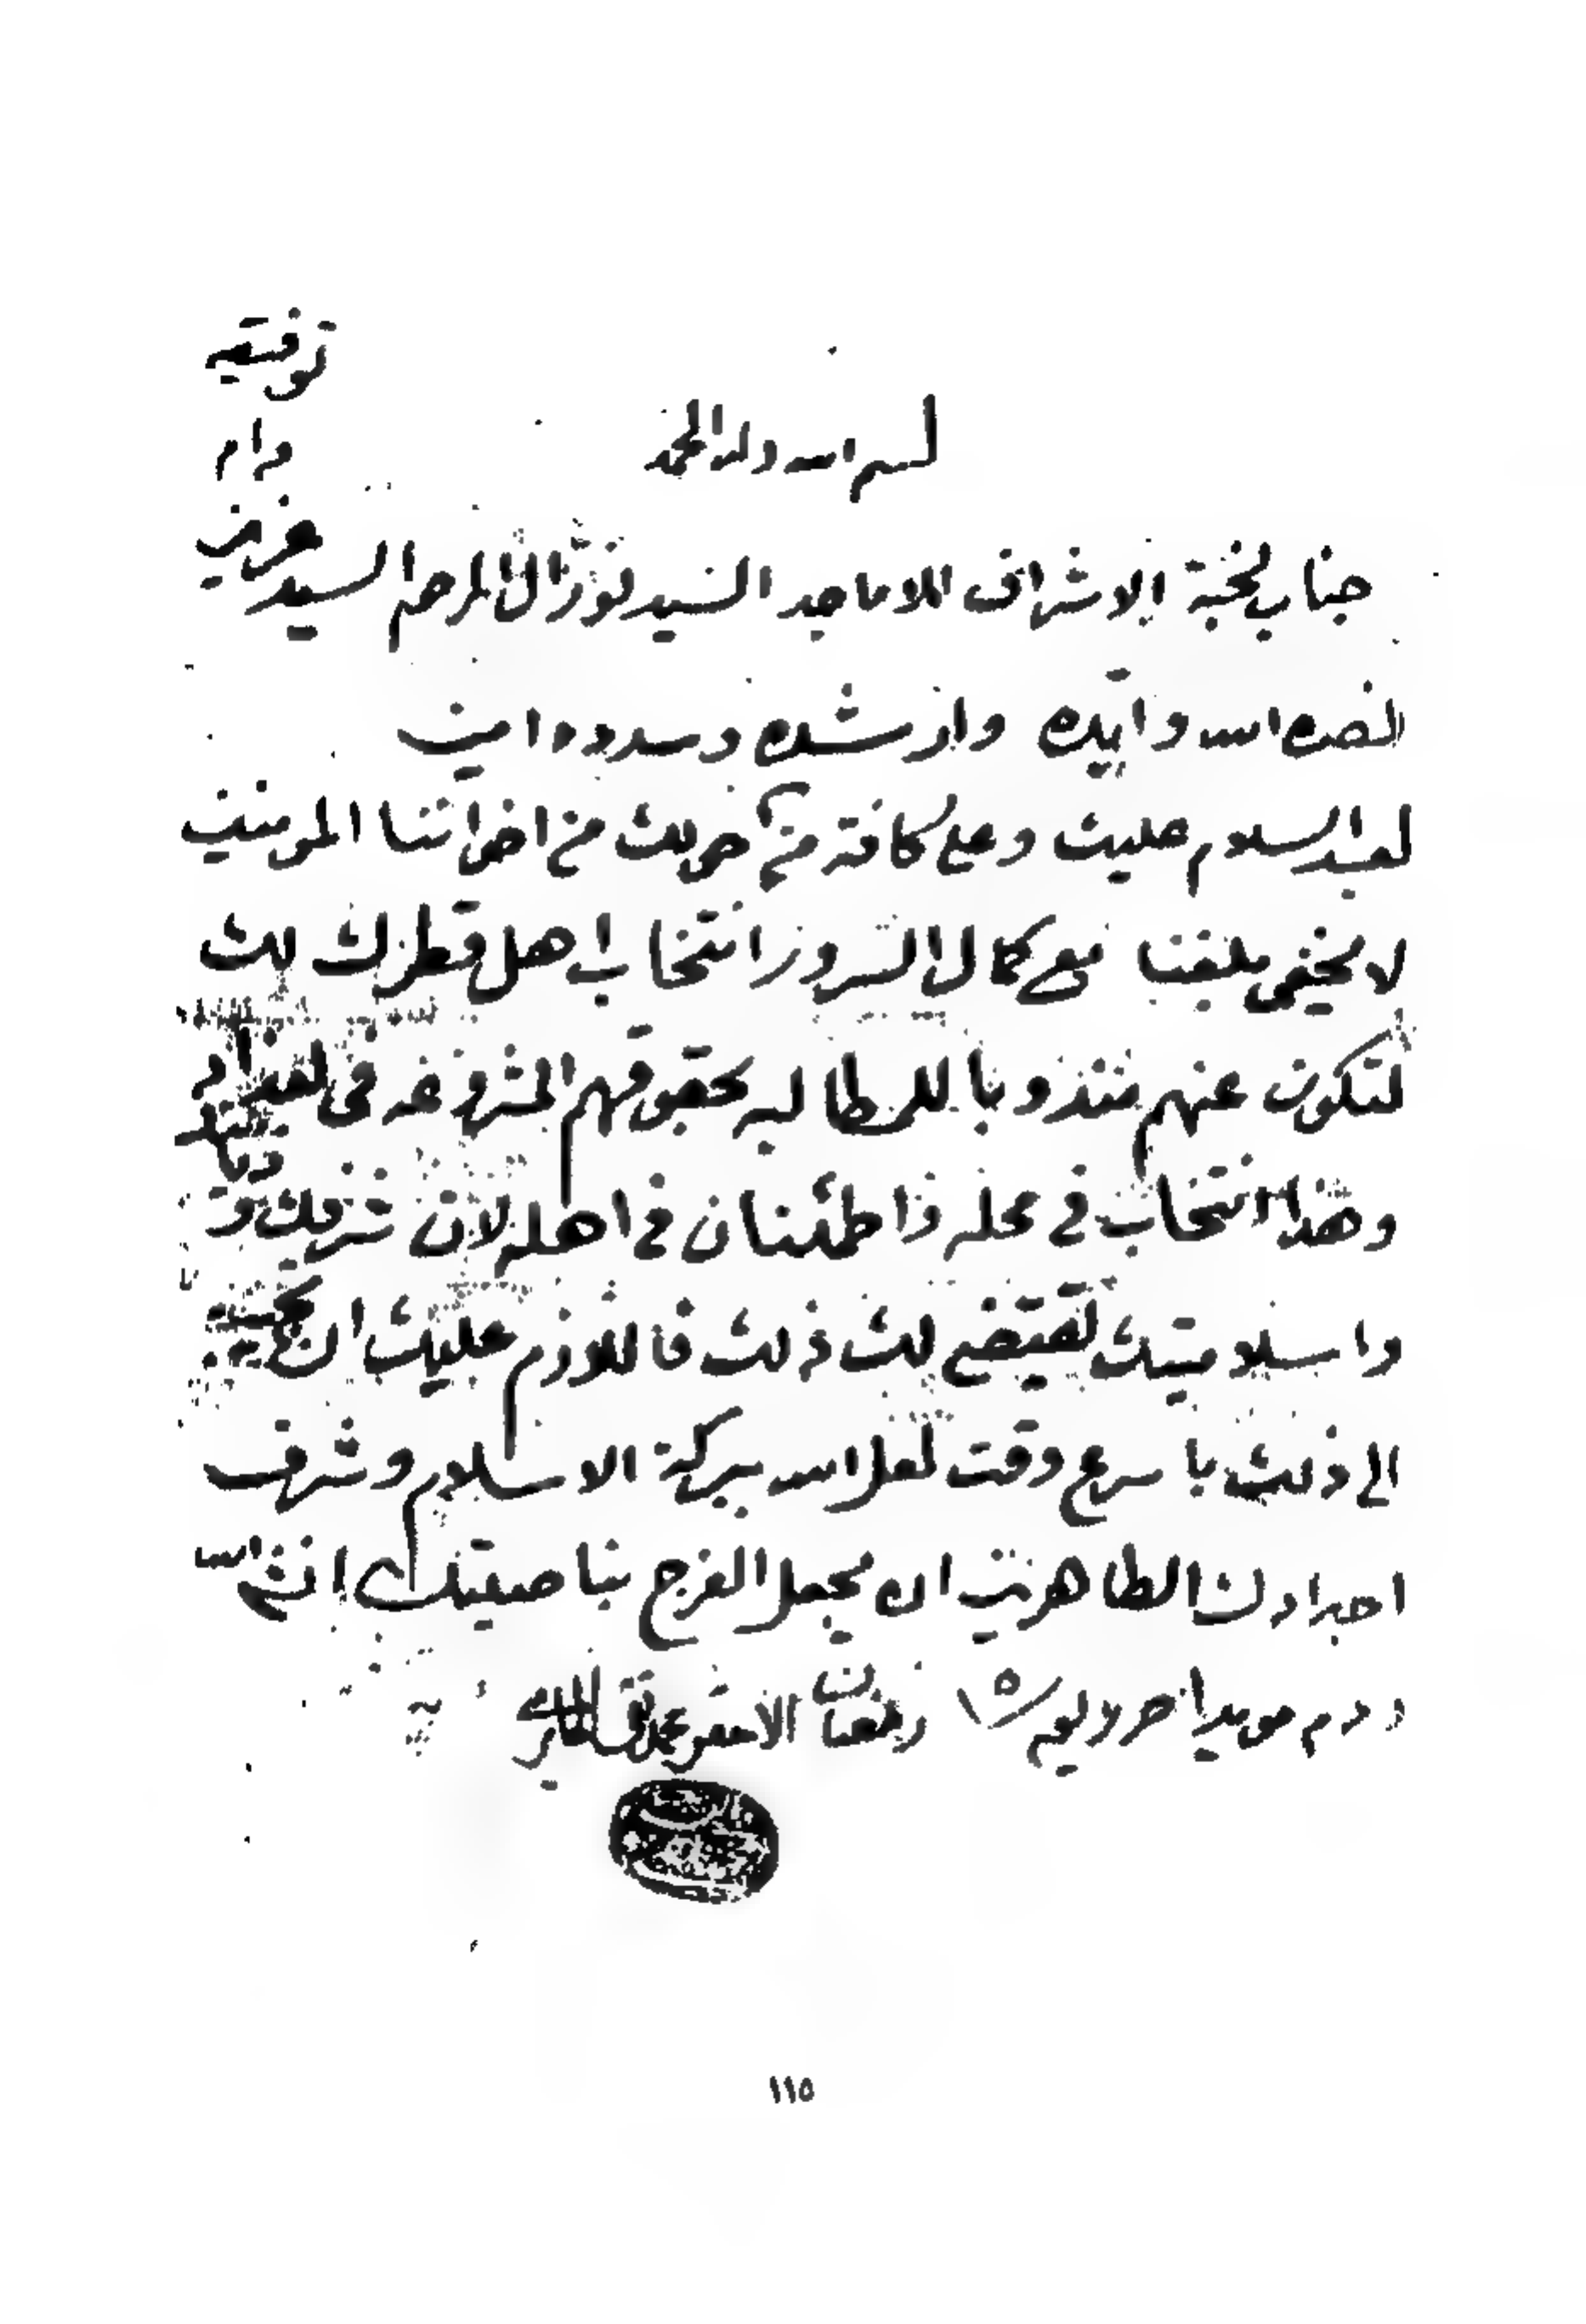 بسم الله وله الحمد
جناب نخبة الاشراف الاماجد السيد نور ال المرحوم السيد عزيز
دام
توفيقه
نصره الله وأيده وارشده وسدده امين
بعد السلام عليك وعلى كافة من حولك من اخواننا المؤمنين
لا يخفى بلغنا مع كمال السرور انتخاب اهل قطرك لك
لتكون عنهم مندوبا للمطالبه بحقوقهم المشروعه في بغداد
وهذا انتخاب في محله واطمئنان في اهله لان شرفك
واسلاميتك تقتضي لك ذلك فاللازم عليك ان
الى ذلك باسرع وقت لعل الله ببركة الاسلام وشرف
اجدادك الطاهرين ان يجعل الفرج بناصيتك انشاء الله
ودم مويدا حرر ليوم ١٥ رمضان الأحقر محمد تقي الحائري
١١٥